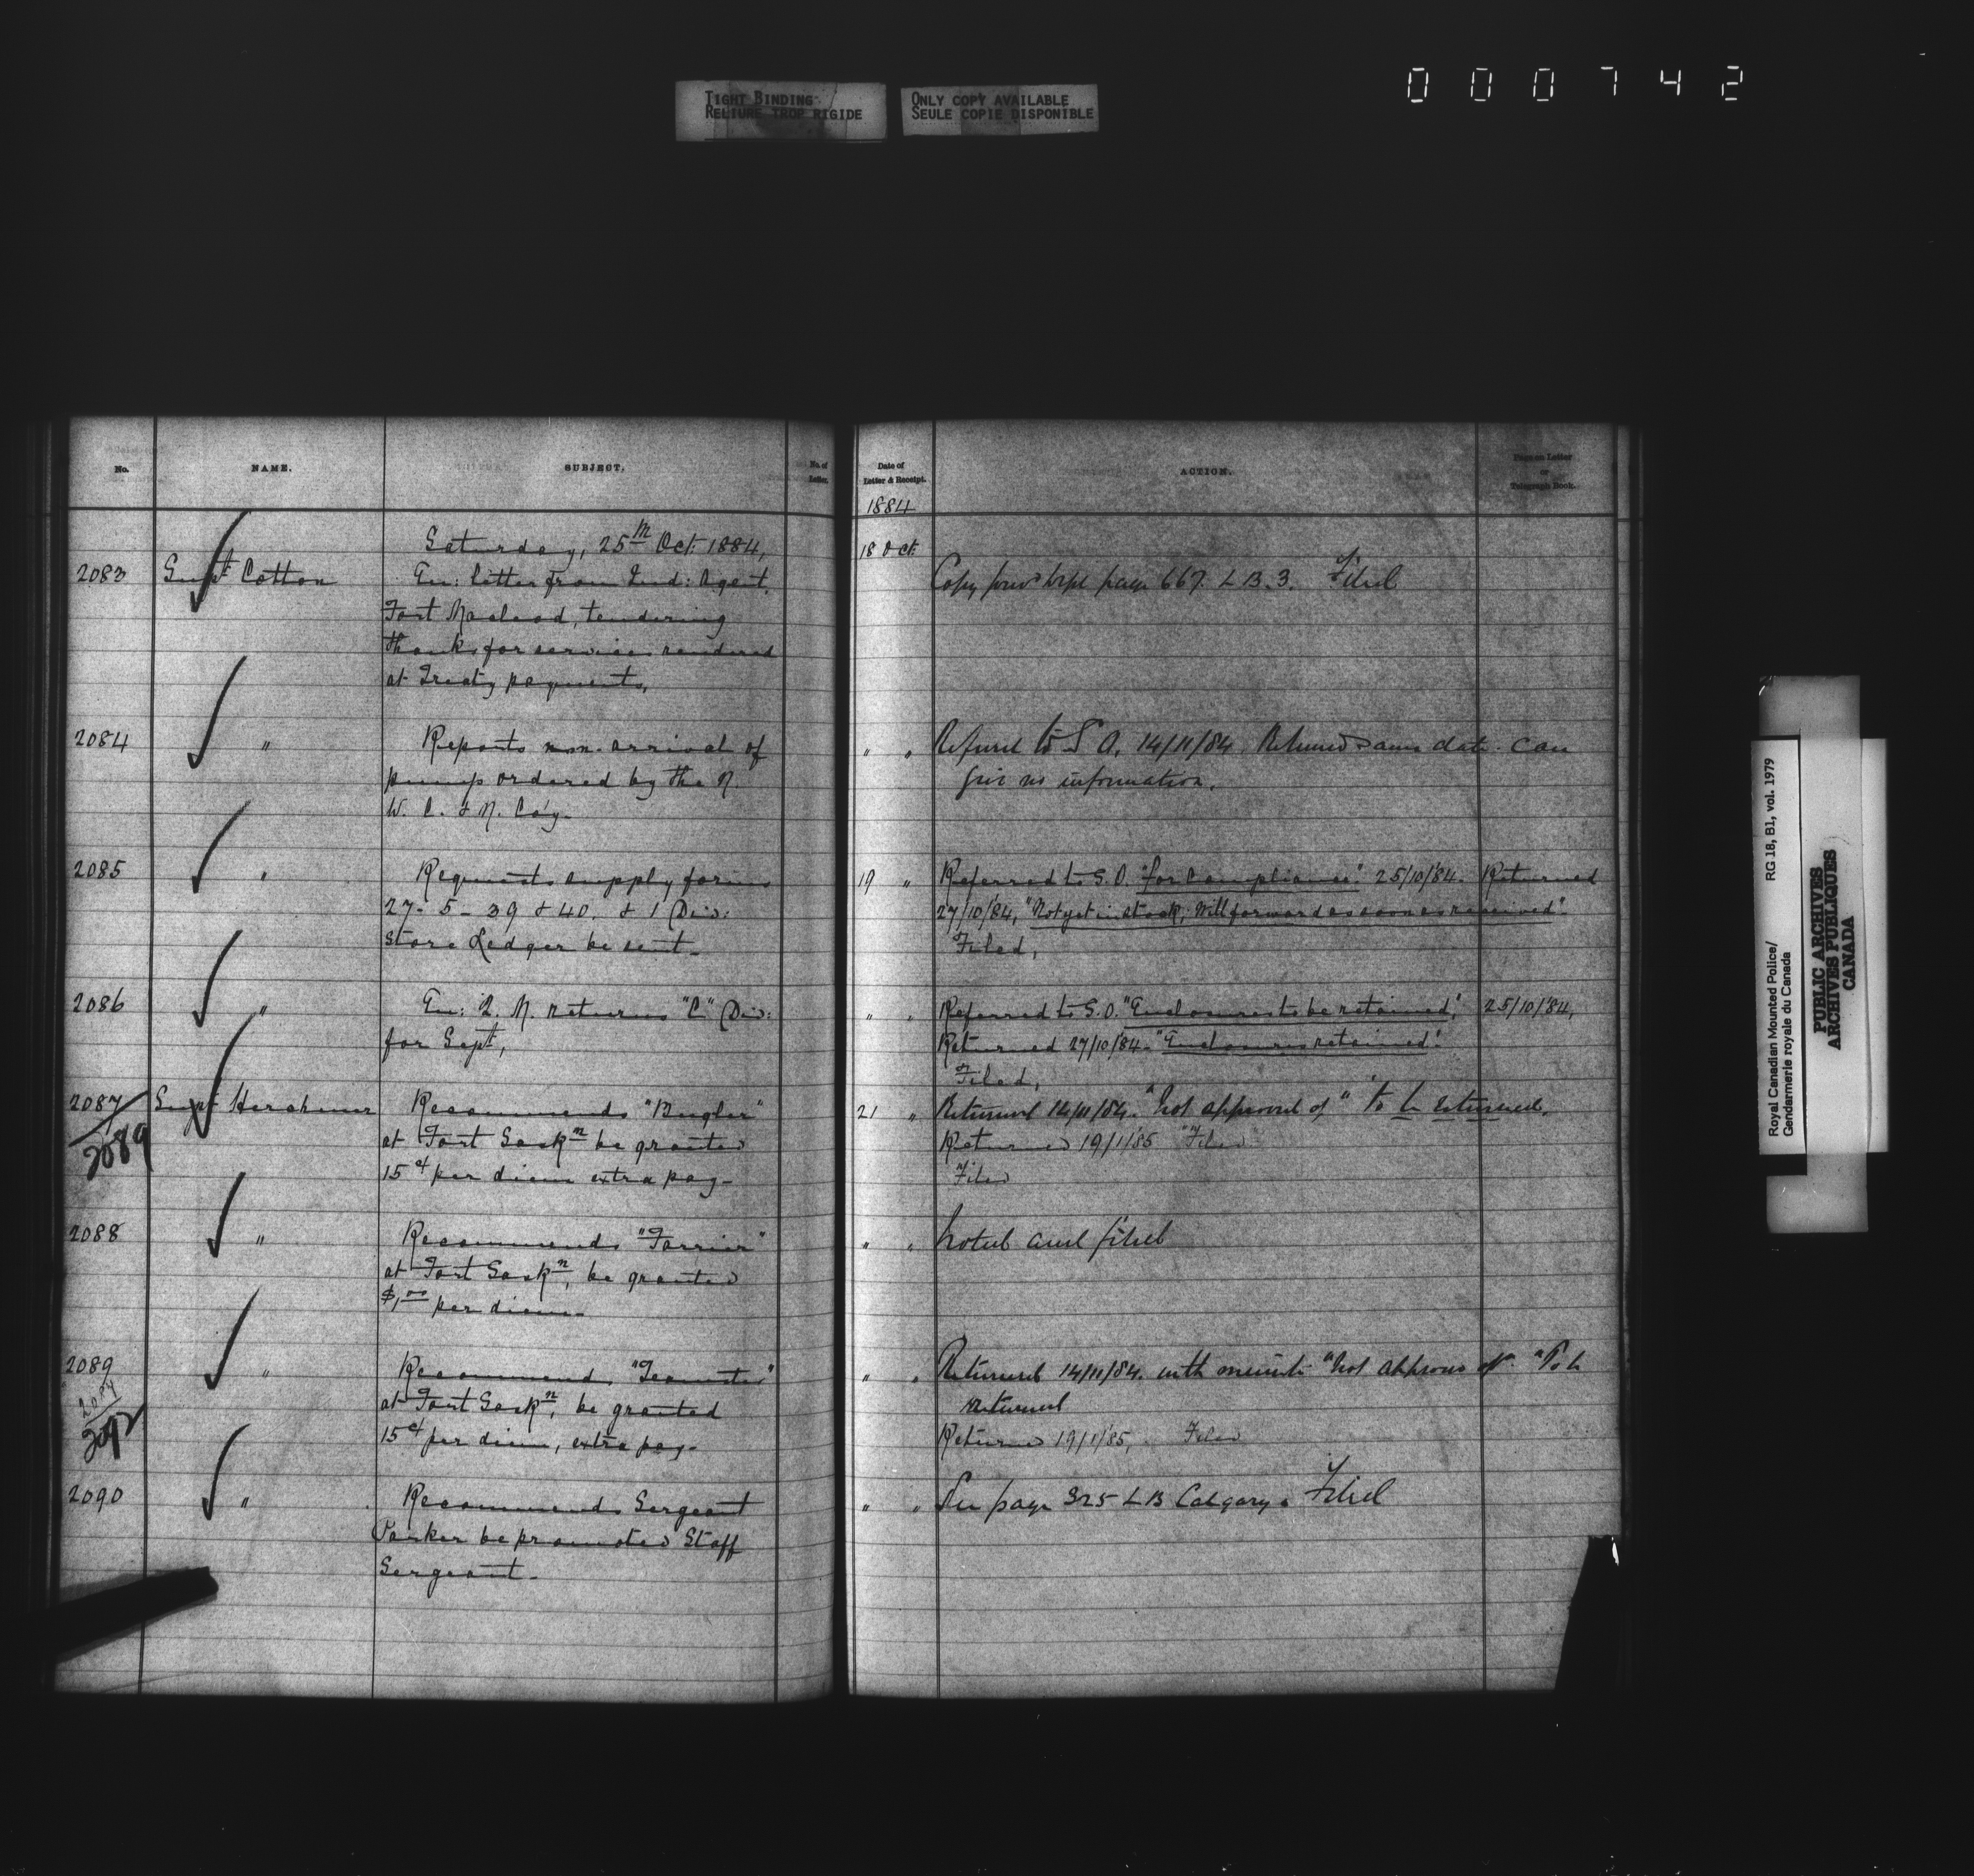 000742
TIGHT BINDING
RELIURE TROP RIGIDE
ONLY COPY AVAILABLE
SEULE COPIE DISPONIBLE
No.
NAME.
SUBJECT.
No. of
Letter.
Saturday, 25th Oct: 1884,
2083 Supt Cotton En: letter from Ind: Agent,
Fort Macleod, tendering
thanks for services rendered
at Treaty payments,
2084 " Reports non-arrival of
pump ordered by the N.
W. C. & N. Co'y-
2085 " Requests supply forms
27-5-39 & 40. & 1 Div:
Store Ledger be sent-
2086 " En: Q. M. returns "C" Div:
for Sept,
2087 Supt Herchmer Recommends "Bugler"
2089
at Fort Saskn be granted
15ct per diem extra pay-
2088 " Recommends "Farrier"
at Fort Saskn, be granted
$1,00 per diem-
2089 " Recommends "Teamster"
2087
at Fort Saskn, be granted
2092
15ct per diem, extra pay-
2090 " Recommends Sergeant
Parker be promoted Staff
Sergeant-
Date of
Letter & Receipt.
ACTION.
Page on Letter
or
Telegraph Book.
1884
18 Oct:
Copy page 667. L B. 3. Filed
" " Referred to S O. 14/11/84. Returned same date. Can
give no information.
19 " Referred to S.O. "for compliance" 25/10/84. Returned
27/10/84, "Not yet in stock, will forward as soon as received".
Filed,
" " Referred to S.O. "Enclosures to be retained", 25/10/84,
Returned 27/10/84- "Enclosures retained".
Filed,
21 " Returned 14/11/84. "Not approved of" "To be returned.
Returned 19/1/85 "Filed"
Filed
" " Noted and filed
" " Returned 14/11/84. with minute "Not approved of". "To be
returned
Returned 19/1/85, Filed
" " See page 325 L B Calgary. Filed
Royal Canadian Mounted Police/
Gendarmerie royale du Canada
RG 18, B1, vol. 1979
PUBLIC ARCHIVES
ARCHIVES PUBLIQUES
CANADA